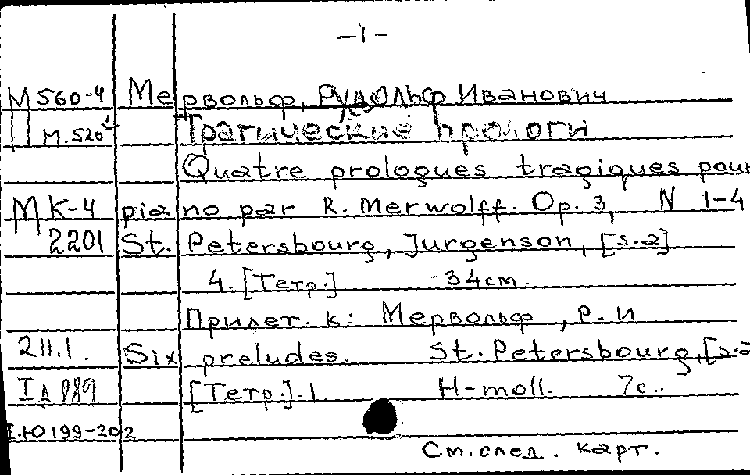 -1-
М560-4 Мервольф, Рудольф Иванович
М.520 Трагические прологи
Quatre prologues tragiques pour
МК-4 piano par R. Merwolff. Op. 3, N 1-4
2201 St. Petersbourg, Jurgenson, [s.a]
4.[Тетр.] 34cm.
Прилет. к: Мервольф, Р.И
211.1. Six preludes. St. Petersbourg, [s.a
[Тетр.].1 H-moll. 7с..
I.Ю199-202
См. след. карт.